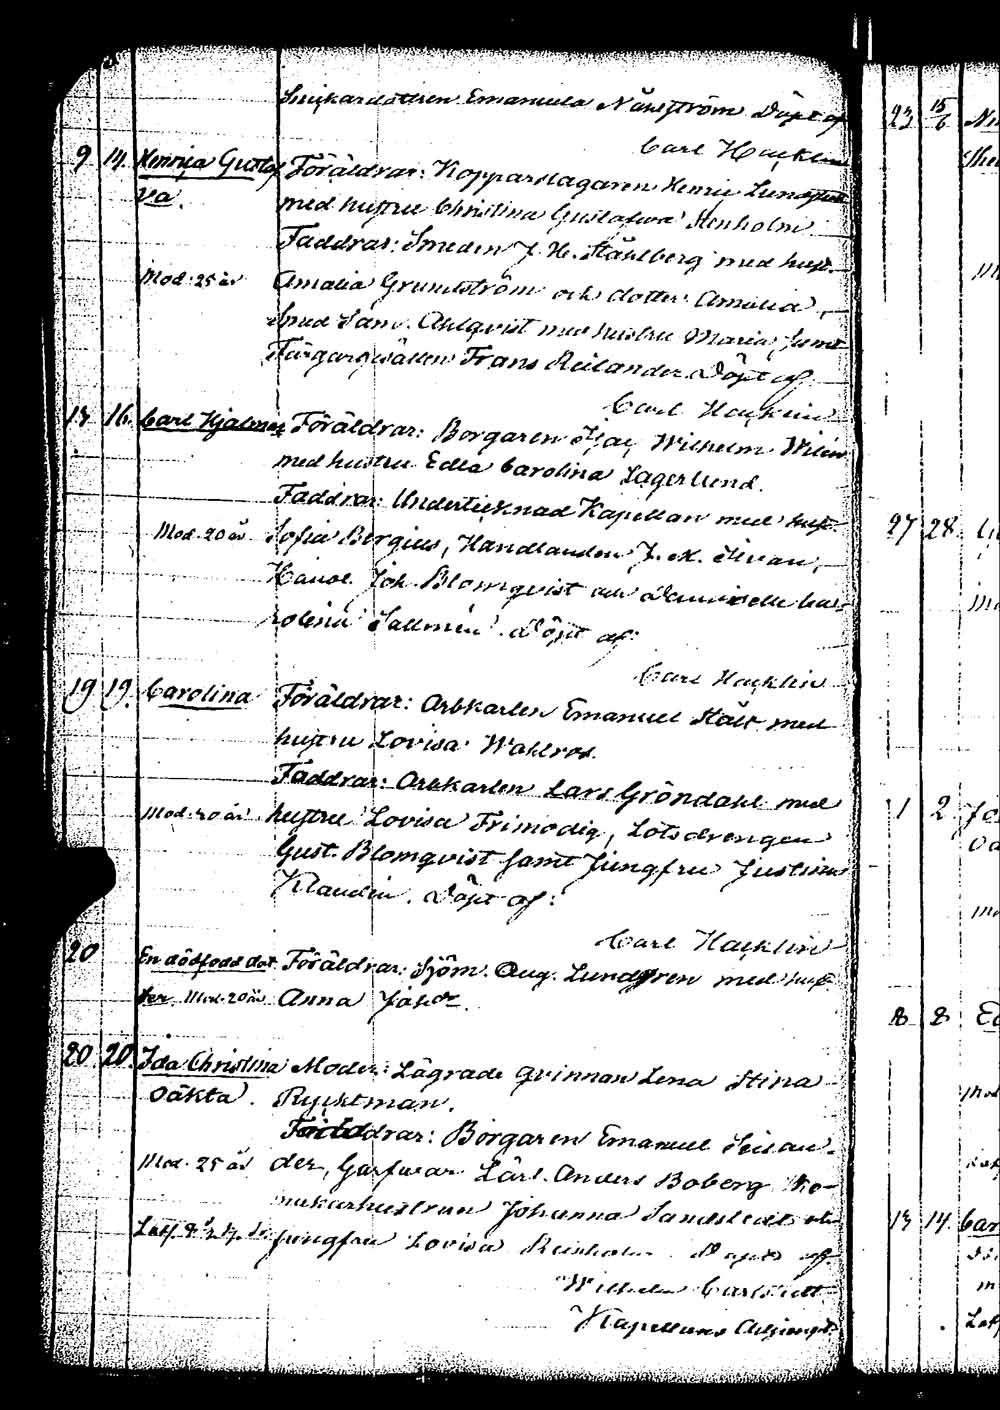 Snickardottren Emanuela Näsström Döpt af
Carl Hacklin
9 14. Henrica Gustaf Föräldrar: Kopparslagaren Henric Lundstedt
va. med hustru Christina Gustafva Stenholm
Faddrar: Smeden J. H. Ståhlberg med hust.
Mod. 25 år Amalia Grundström och dotter Amalia,
Smed Sam. Ahlqvist med hustru Maria, samt
Färgargesällen Frans Reilander. Döpt af
Carl Hacklin
13 16. Carl Hjalmar Föräldrar: Borgaren Isac Wilhelm
med hustru Edla Carolina Lagerlund.
Faddrar: Undertecknad Kapellan med hust.
Mod. 20 år Sofia Bergius, Handlanden J. M.
Joh. Blomqvist och Ca-
rolina Sallmén. Döpt af:
Carl Hacklin
19 19. Carolina Föräldrar: Arbkarlen Emanuel Stålt med
hustru Lovisa Wahlros.
Faddrar: Arbkarlen Lars Gröndahl med
Mod. 40 år hustru Lovisa Frimodig, Lotsdrengen
Gust. Blomqvist samt Jungfru Justina
Klaudin. Döpt af:
Carl Hacklin
20 En dödfödd dot Föräldrar: Sjöm. Aug. Lundgren med hust.
ter Mod. 20 år Anna Jasdr.
20 20. Ida Christina Moder: Lägrade qvinnan Lena Stina
Oäkta. Rycktman.
Faddrar: Borgaren Emanuel Seilan-
Mod. 25 år der, Garfvar Lärl. Anders Boberg,
makarhustrun Johanna Sandstedt och
Jungfru Lovisa Reinholm Döpt af
Wilhelm Carlstedt
Kapellans Adjungt.
23 15/6
27 28.
1 2
8 8
13 14.